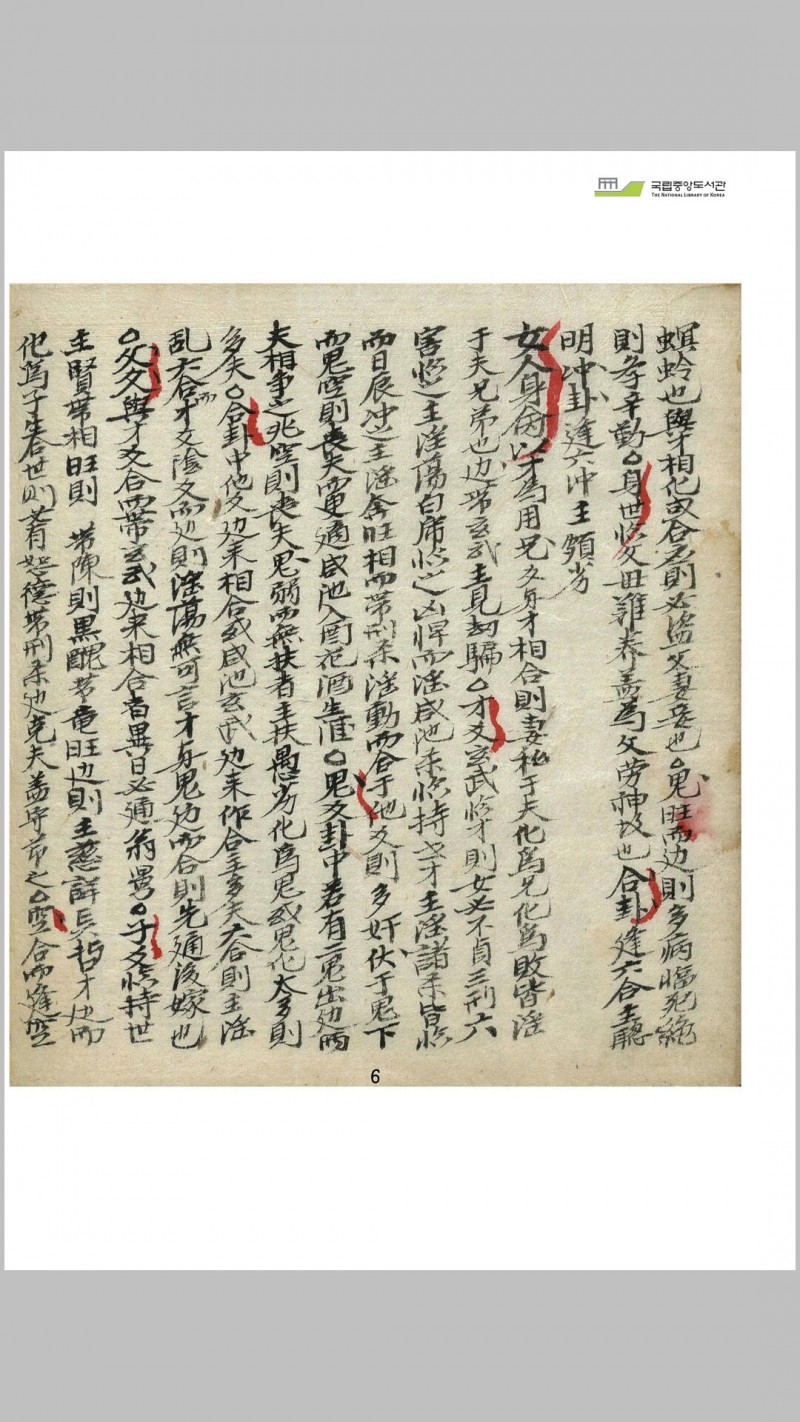 국립중앙도서관
THE NATIONAL LIBRARY OF KOREA
螟蛉也與才相化或合忌則必盜父妻妾也○鬼旺而边則多病臨死絶
則孝辛勤○身世临父母難養盖爲父劳神故也合卦逢六合主聰
明冲卦逢六冲主頑劣
女人身病以才爲用兄爻与才相合則妻私于夫化爲兄化爲敗皆淫
于夫兄弟也边帶玄武主見劫騙○才爻玄武临才則女必不貞三刑六
害临之主淫蕩白虎临之凶悍而淫咸池杀临持世才主淫諸杀皆临
而日辰冲之主淫奔旺相而帶刑杀淫動而合于他爻則多奸伏于鬼下
而鬼空則喪夫而更適咸池入酉花酒生涯○鬼爻卦中若有二鬼出边兩
夫相争之兆空則喪夫鬼弱而無扶者主扶愚劣化爲鬼或鬼化太多則
多夫○合卦中他爻边来相合或咸池玄武边来作合主多夫六合則主淫
乱六合而才爻陰爻而边則淫蕩無可言才与鬼边而合則先通後嫁也
○父爻與才爻合而帶玄武边来相合者異日必通翁○子爻临持世
主賢帶相旺則 帶陳則黒醜帶竜旺边則主慈詳兵哲才边而
化爲子生合世則著 德帶刑杀边克夫盖守節之○空合而逢空
6